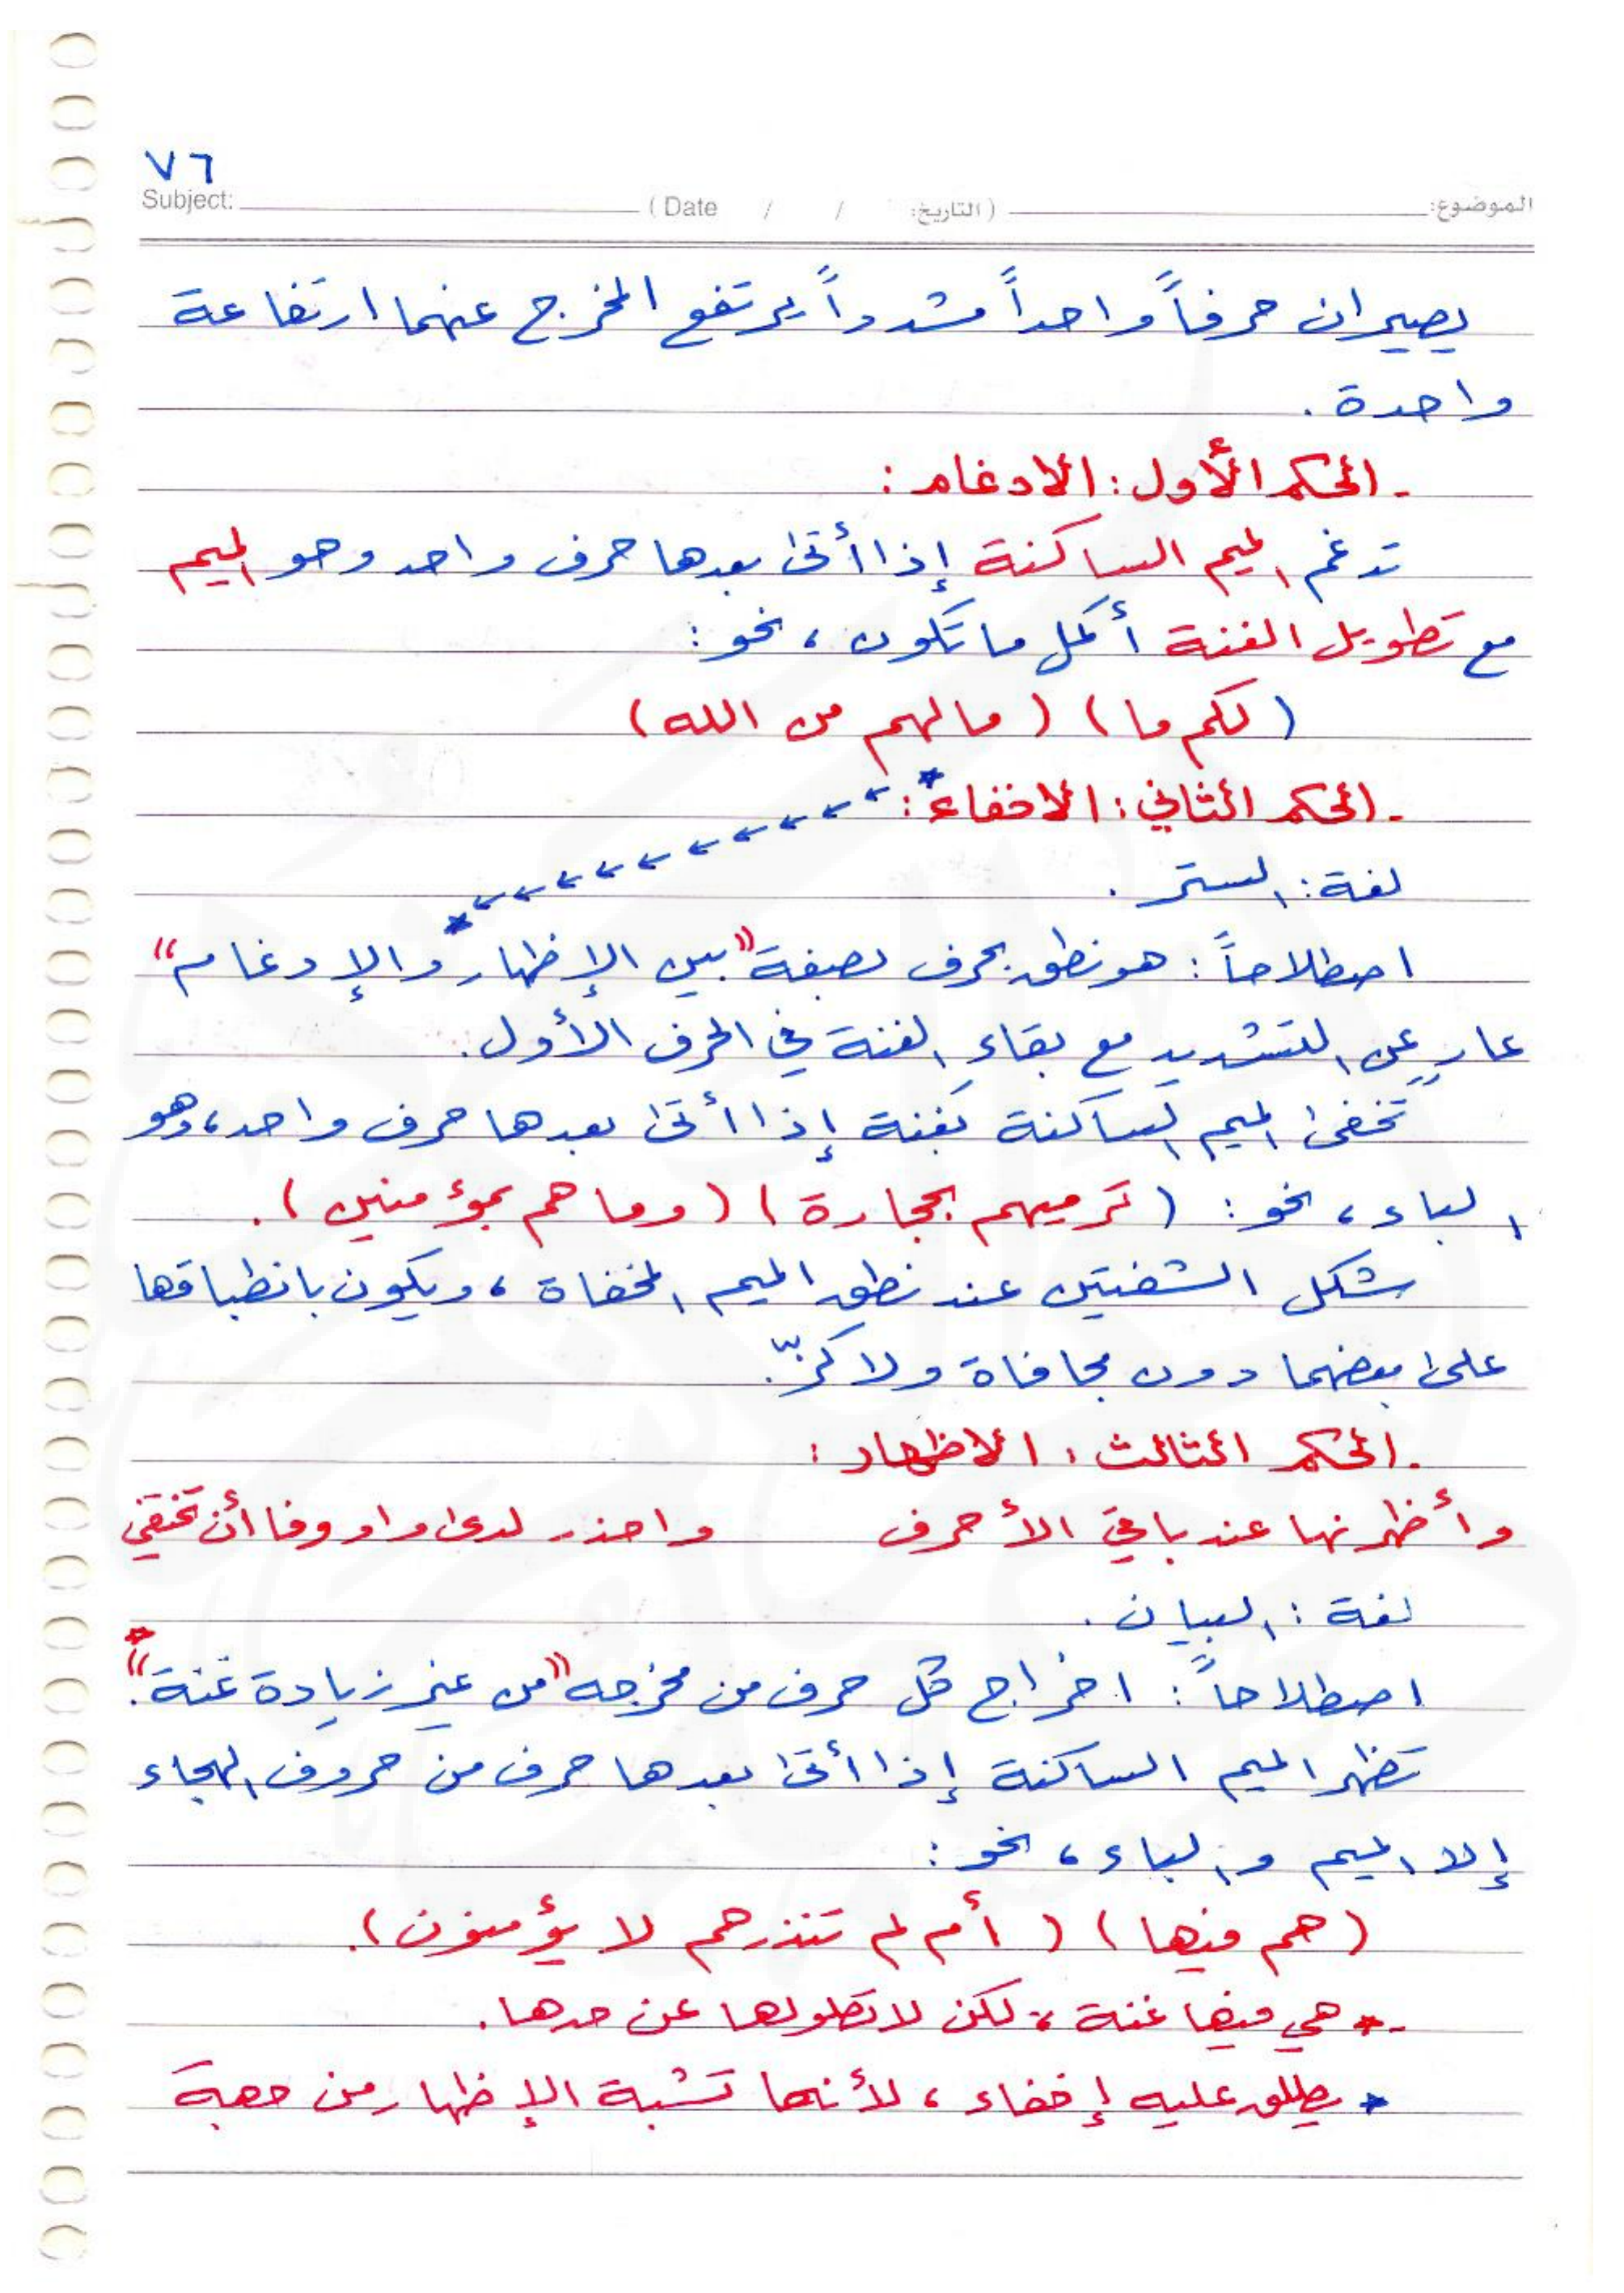 ٧٦
Subject: ( Date / / التاريخ: ) الموضوع:
يصيران حرفاً واحداً مشدداً يرتفع المخرج عنهما ارتفاعة
واحدة .
- الحكم الأول : الادغام :
تدغم الميم الساكنة إذا أتى بعدها حرف واحد وهو الميم
مع تطويل الغنة أكمل ما تكون ، نحو :
( لكم ما ) ( مالهم من الله )
- الحكم الثاني : الاخفاء* :
لغة : الستر .
اصطلاحاً : هو نطق بحرف بصفة "بين الإظهار والإدغام"
عارٍ عن التشديد مع بقاء الغنة في الحرف الأول .
تخفى الميم الساكنة بغنة إذا أتى بعدها حرف واحد ، وهو
الباء ، نحو : ( ترميهم بحجارة ) ( وما هم بمؤمنين ) .
شكل الشفتين عند نطق الميم المخفاة ، ويكون بانطباقها
على بعضهما دون مجافاة ولا كزّ .
- الحكم الثالث : الاظهار :
وأظهرنها عند باقي الأحرف واحذر لدى واو وفا أن تختفي
لغة : البيان .
اصطلاحاً : اخراج كل حرف من مخرجه "من غير زيادة غنة" . *
تظهر الميم الساكنة إذا أتى بعدها حرف من حروف الهجاء
إلا الميم والباء ، نحو :
( هم فيها ) ( أم لم تنذرهم لا يؤمنون ) .
-* هي فيها غنة ، لكن لا تطولها عن حدها .
* يطلق عليه إخفاء ، لأنها تشبة الإظهار من جهة